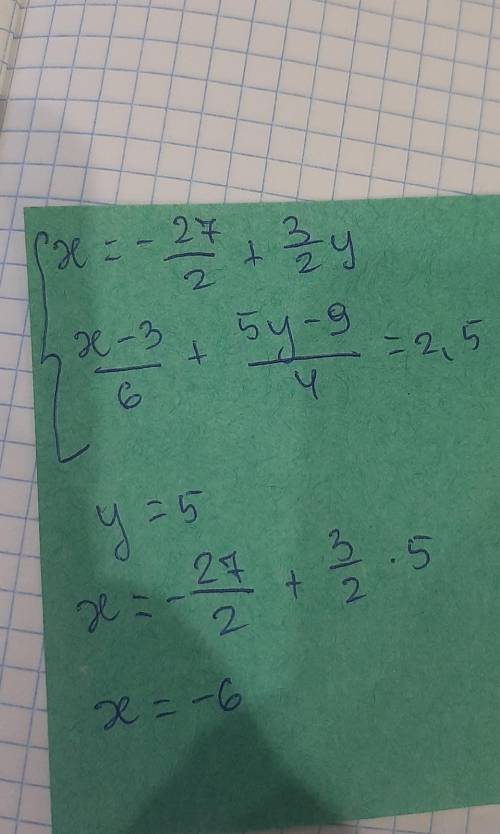 x = - 27/2 + 3/2 y
x-3/6 + 5y-9/4 = 2,5
y = 5
x = - 27/2 + 3/2 · 5
x = -6